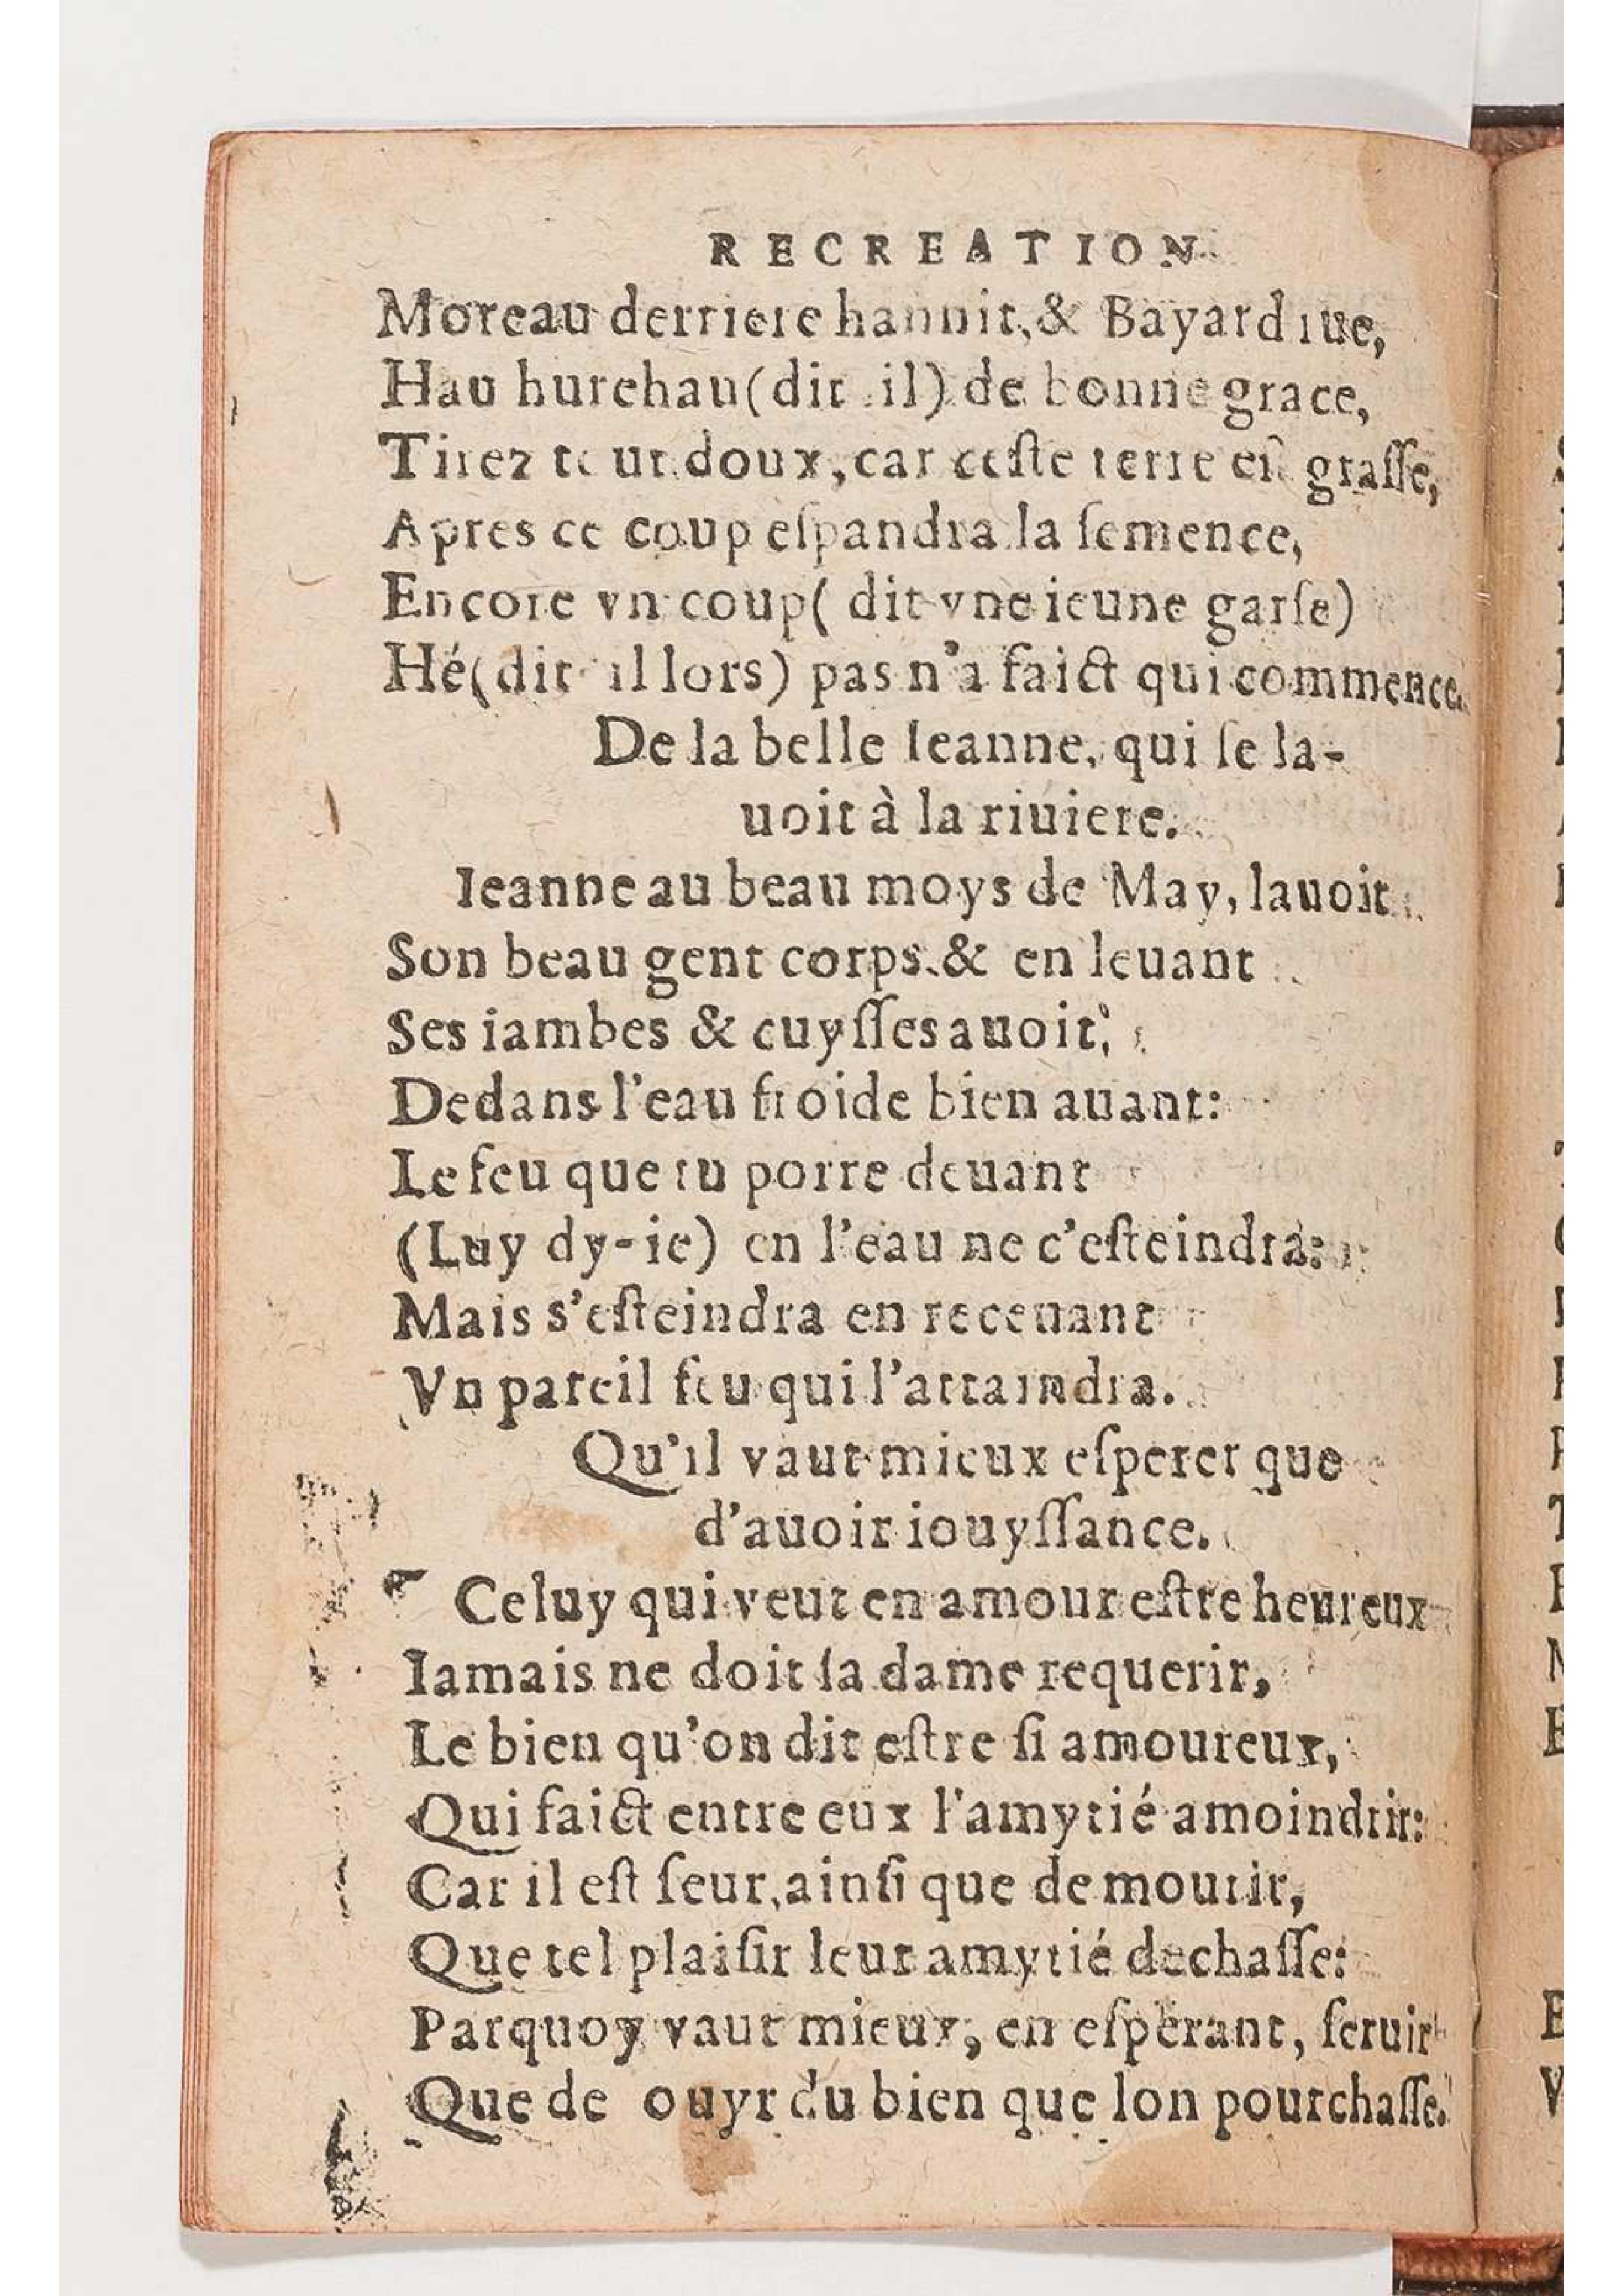 RECREATION
Moreau derriere hannit, & Bayard rue,
Hau hurehau (dit il) de bonne grace,
Tirez tout doux, car ceste terre est grasse,
Apres ce coup eſpandra la ſemence,
Encore vn coup ( dit vne ieune garſe)
Hé (dit il lors) pas n'a faict qui commence.
De la belle Ieanne, qui ſe la-
uoit à la riuiere.
Ieanne au beau moys de May, lauoit
Son beau gent corps. & en leuant
Ses iambes & cuyſſes auoit,
Dedans l'eau froide bien auant:
Le feu que tu porte deuant
(Luy dy-ie) en l'eau ne c'eſteindra:
Mais s'eſteindra en receuant
Vn pareil feu qui l'attaindra.
Qu'il vaut mieux eſperer que
d'auoir iouyſſance.
Celuy qui veut en amour eſtre heureux
Iamais ne doit ſa dame requerir,
Le bien qu'on dit eſtre ſi amoureux,
Qui faict entre eux l'amytié amoindrir:
Car il eſt ſeur, ainſi que de mourir,
Que tel plaiſir leur amytié dechaſſe:
Parquoy vaut mieux, en eſperant, ſeruir
Que de ouyr du bien que lon pourchaſſe.